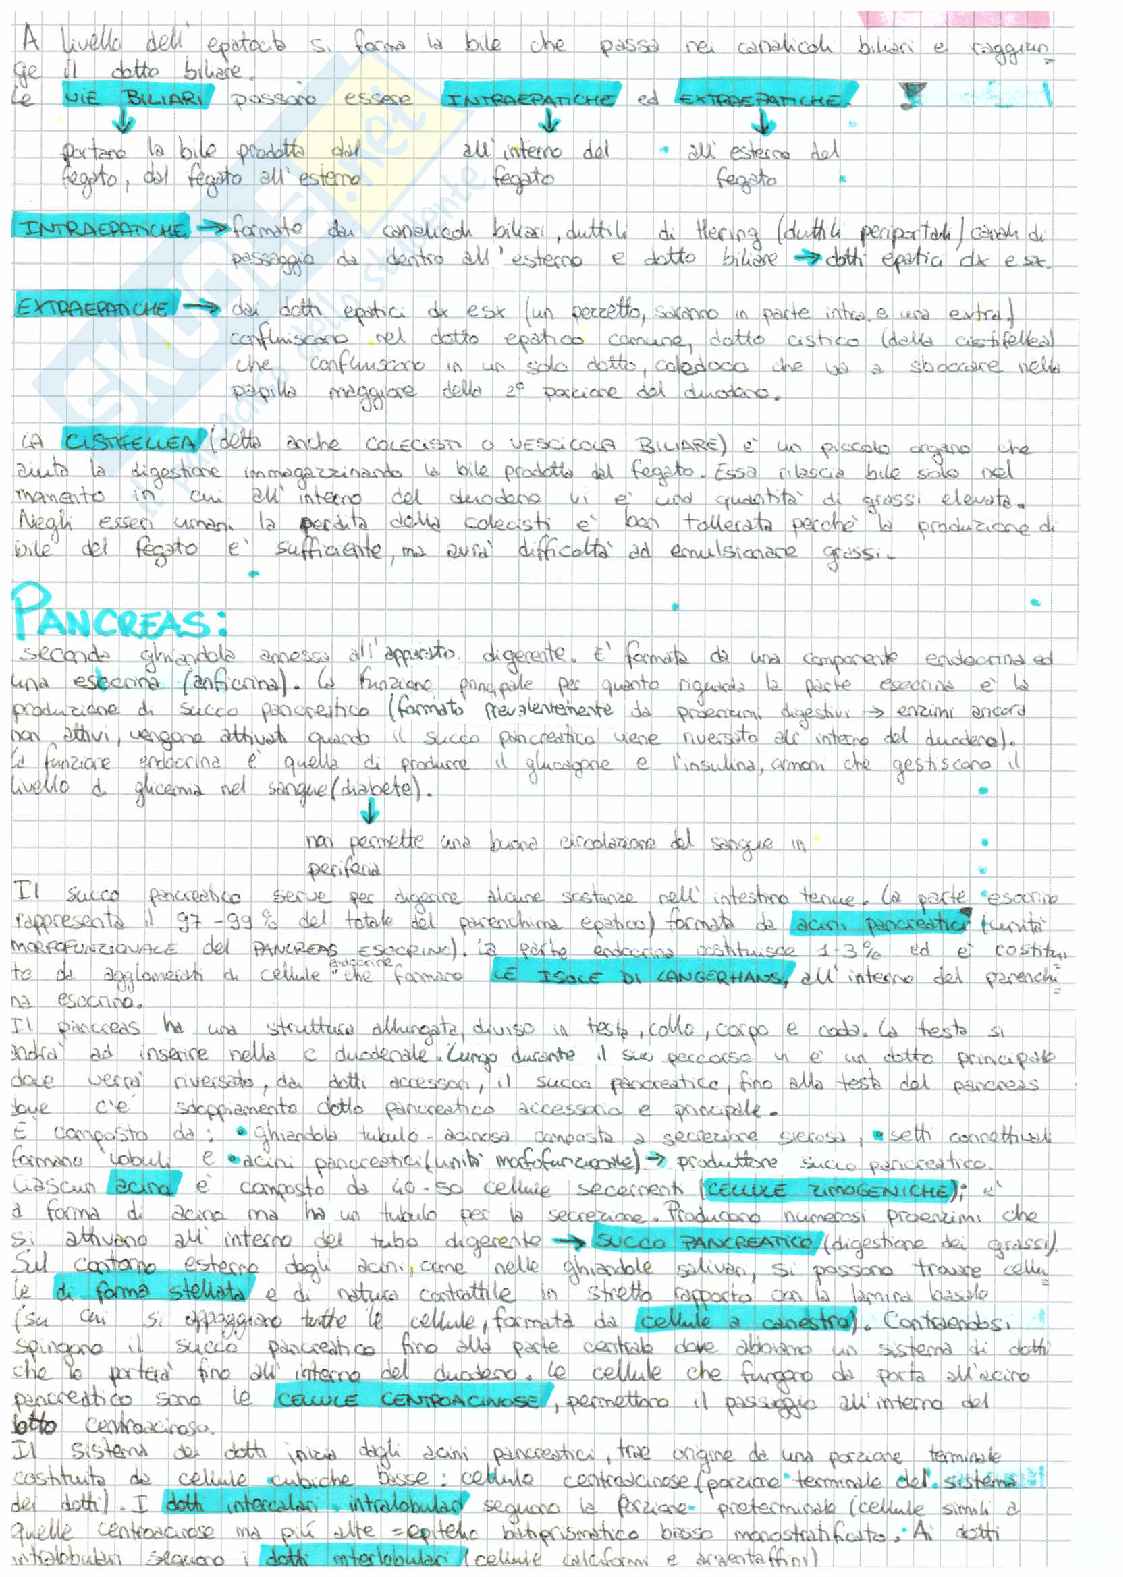 A livello dell'epatocita si forma la bile che passa nei canalicoli biliari e raggiun=
ge il dotto biliare.
Le VIE BILIARI possono essere INTRAEPATICHE ed EXTRAEPATICHE.
portano la bile prodotta dal all'interno del all'esterno del
fegato, dal fegato all'esterno fegato fegato
INTRAEPATICHE → formato dai canalicoli biliari, duttili di Hering (duttili periportali) canali di
passaggio da dentro all'esterno e dotto biliare → dotti epatici dx e sx.
EXTRAEPATICHE → dai dotti epatici dx e sx (un pezzetto, saranno in parte intra e una extra)
confluiscono nel dotto epatico comune, dotto cistico (della cistifellea)
che confluiscono in un solo dotto, coledoco che va a sboccare nella
papilla maggiore della 2° porzione del duodeno.
LA CISTIFELLEA (detta anche COLECISTI O VESCICOLA BILIARE) è un piccolo organo che
aiuta la digestione immagazzinando la bile prodotta dal fegato. Essa rilascia bile solo nel
momento in cui all'interno del duodeno vi è una quantità di grassi elevata.
Negli esseri umani la perdita della colecisti è ben tollerata perchè la produzione di
bile del fegato è sufficiente, ma avrà difficoltà ad emulsionare grassi.
PANCREAS:
seconda ghiandola annessa all'apparato digerente. E' formata da una componente endocrina ed
una esocrina (anficrina). La funzione principale per quanto riguarda la parte esocrina è la
produzione di succo pancreatico (formato prevalentemente da proenzimi digestivi → enzimi ancora
non attivi, vengono attivati quando il succo pancreatico viene riversato all'interno del duodeno).
La funzione endocrina è quella di produrre il glucagone e l'insulina, ormoni che gestiscono il
livello di glicemia nel sangue (diabete).
non permette una buona circolazione del sangue in
periferia
Il succo pancreatico serve per digerire alcune sostanze nell'intestino tenue. La parte esocrina
rappresenta il 97-99% del totale del parenchima epatico) formata da acini pancreatici (unità
MORFOFUNZIONALE del PANCREAS ESOCRINO). La parte endocrina costituisce 1-3% ed è costitui=
ta da agglomerati di cellule endocrine che formano LE ISOLE DI LANGERHANS, all'interno del parenchi=
ma esocrino.
Il pancreas ha una struttura allungata, diviso in testa, collo, corpo e coda. La testa si
andrà ad inserire nella C duodenale. Lungo durante il suo percorso vi è un dotto principale
dove verrà riversato, dai dotti accessori, il succo pancreatico, fino alla testa del pancreas
dove c'è sdoppiamento dotto pancreatico accessorio e principale.
È composto da: • ghiandola tubulo-acinosa composta a secrezione sierosa, • setti connettivali
formano lobuli e • acini pancreatici (unità morfofunzionale) → produttore succo pancreatico.
Ciascun acino è composto da 40-50 cellule secernenti (CELLULE ZIMOGENICHE); è
a forma di acino ma ha un tubulo per la secrezione. Producono numerosi proenzimi che
si attivano all'interno del tubo digerente → SUCCO PANCREATICO (digestione dei grassi).
Sul contorno esterno degli acini, come nelle ghiandole salivari, si possono trovare cellu=
le di forma stellata e di natura contrattile in stretto rapporto con la lamina basale
(su cui si appoggiano tutte le cellule, formata da cellule a canestro). Contraendosi
spingono il succo pancreatico fino alla parte centrale dove abbiamo un sistema di dotti
che lo porterà fino all'interno del duodeno. Le cellule che fungono da porta all'acino
pancreatico sono le CELLULE CENTROACINOSE, permettono il passaggio all'interno del
dotto centroacinoso.
Il sistema dei dotti inizia dagli acini pancreatici, trae origine da una porzione terminale
costituita da cellule cubiche basse: cellule centroacinose (porzione terminale del sistema
dei dotti). I dotti intercalari intralobulari seguono la porzione preterminale (cellule simili a
quelle centroacinose ma più alte = epitelio batiprismatico basso monostratificato. Ai dotti
intralobulari seguono i dotti interlobulari (cellule caliciformi e argentaffini)